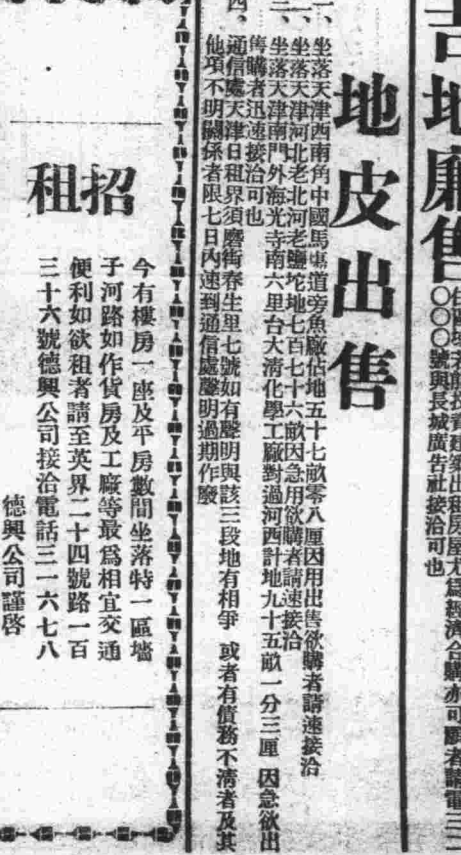 吉地廉售
〇〇〇號與長城廣告社接洽可也
地皮出售
一、坐落天津西南角中國馬塲道旁魚廠佔地五十七畝零八厘因用出售欲購者請速接洽
二、坐落天津河北老北河老鹽坨地七百七十六畝因急用欲購者請速接洽
三、坐落天津南門外海光寺南六里台大清化學工廠對過河西計地九十五畝一分三厘因急欲出
售購者迅速接洽可也
四、通信處天津日租界須磨街春生里七號如有聲明與該三段地有相爭 或者有債務不清者及其
他項不明關係者限七日內速到通信處聲明過期作廢
招租
今有樓房一座及平房數間坐落特一區墻
子河路如作貨房及工廠等最爲相宜交通
便利如欲租者請至英界二十四號路一百
三十六號德興公司接洽電話三一六七八
德興公司謹啓